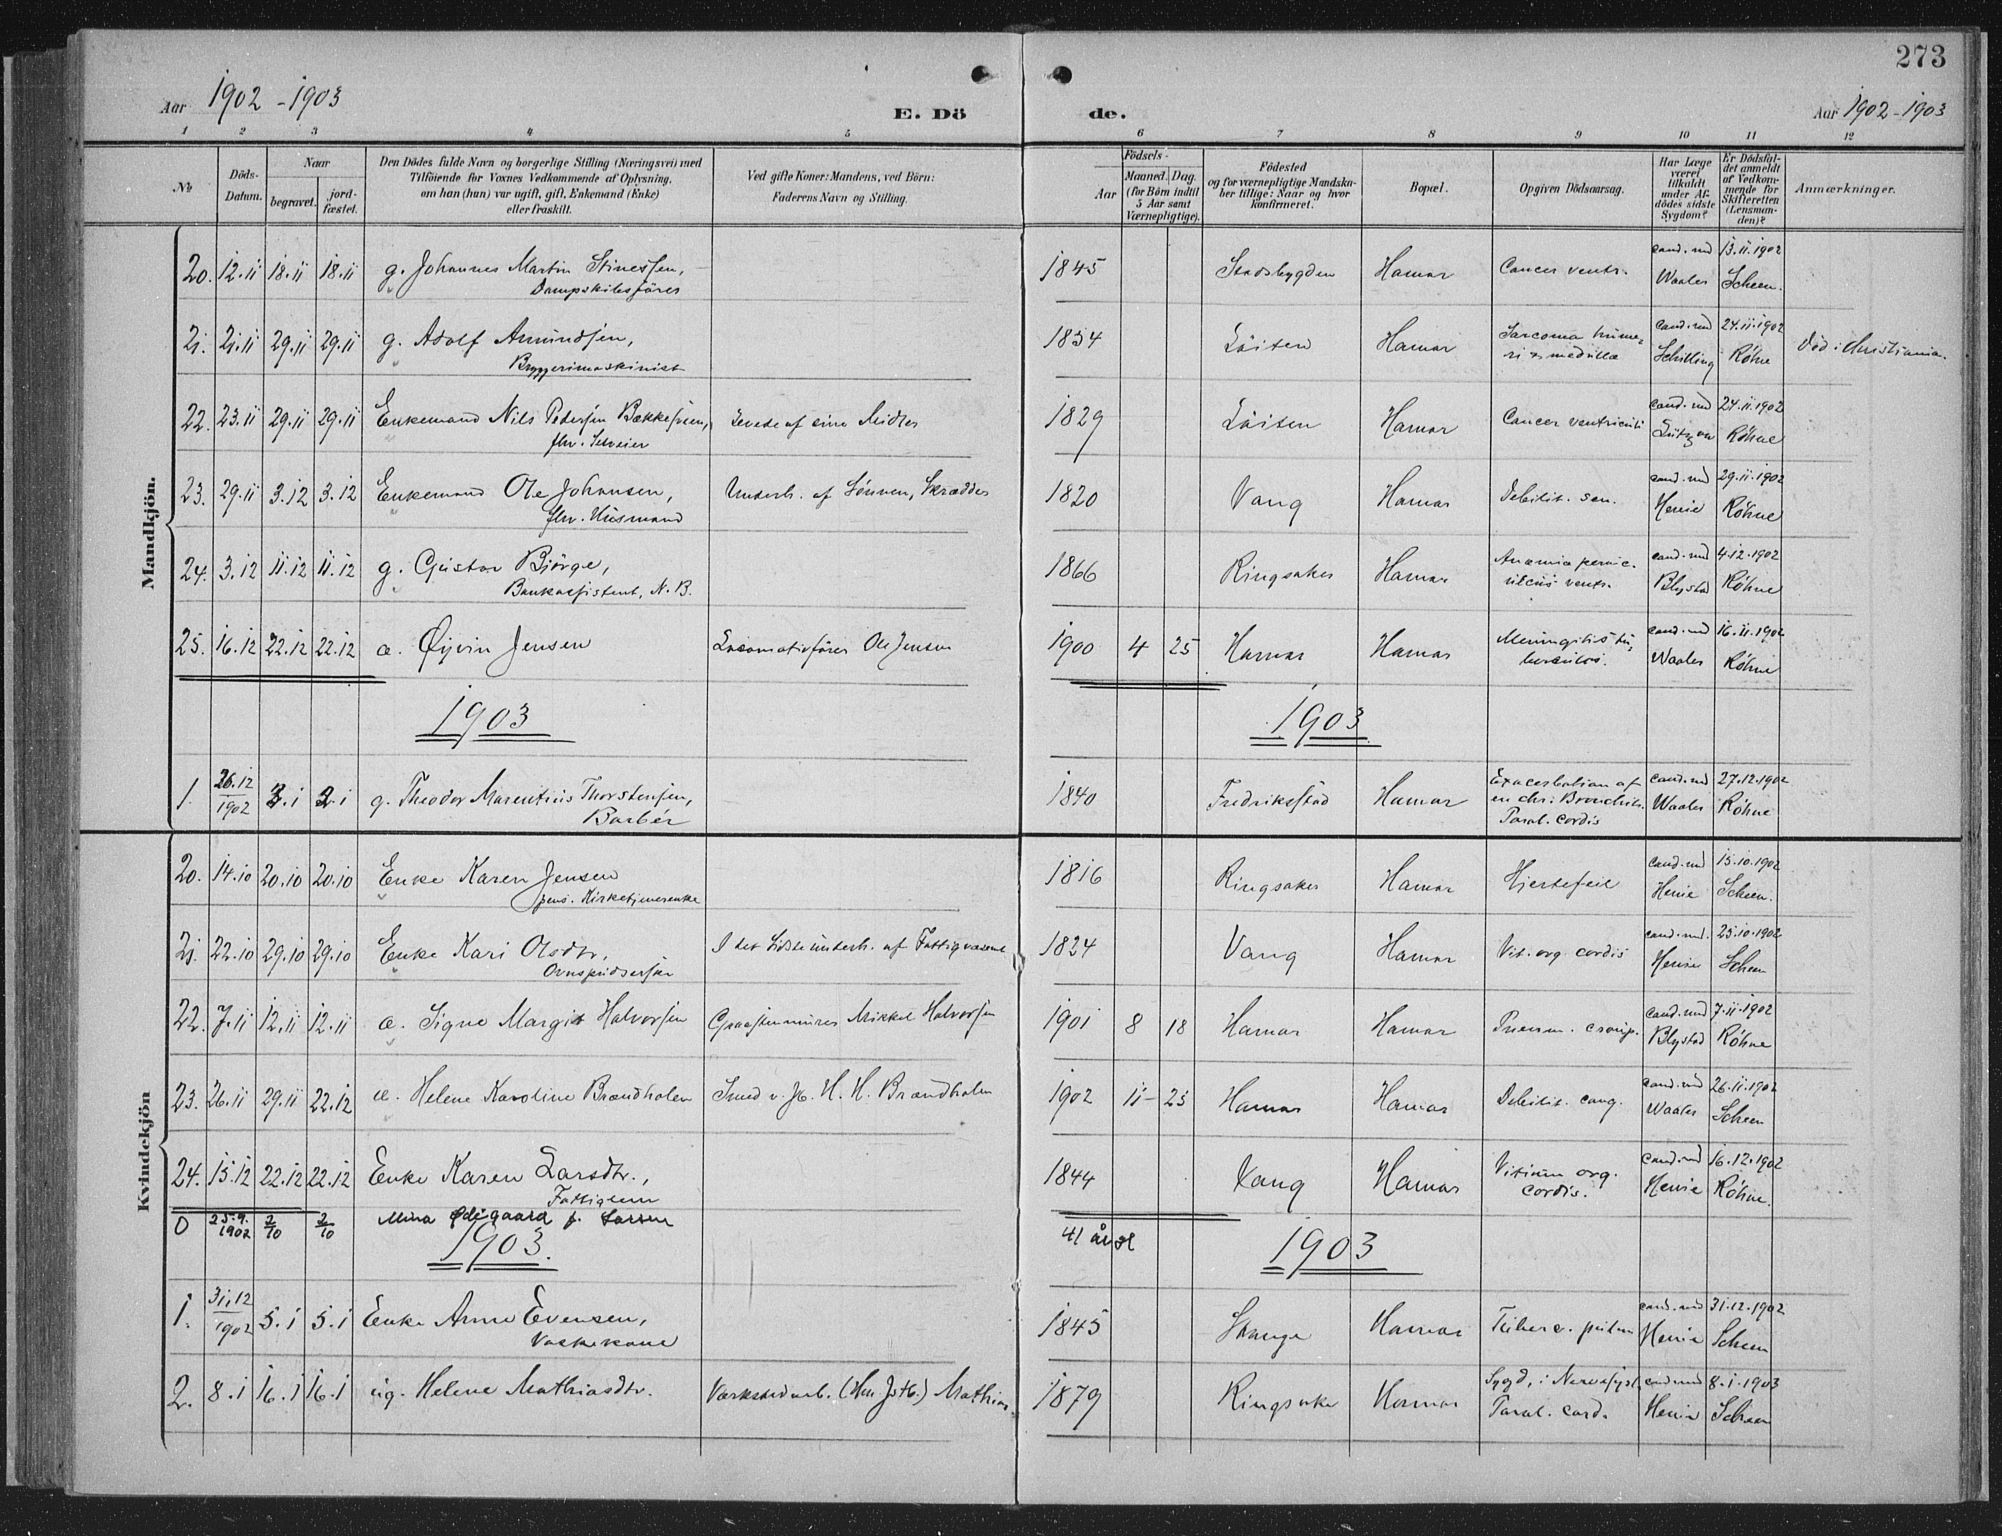 273
Aar 1902 - 1903
E. Dö
de.
Aar 1902 - 1903
1 2 3 4 5 6 7 8 9 10 11 12
No
Döds-Datum.
Naar
begravet.
jord-fæstet.
Den Dödes fulde Navn og borgerlige Stilling (Næringsvei) med
Tilföiende for Voxnes Vedkommende af Oplysning,
om han (hun) var ugift, gift, Enkemand (Enke)
eller fraskilt.
Ved gifte Koner: Mandens, ved Börn:
Faderens Navn og Stilling.
Födsels-
Aar
Maaned. Dag.
(for Börn indtil
5 Aar samt
Værnepligtige).
Födested
og for værnepligtige Mandskaber tillige: Naar og hvor
konfirmeret.
Bopæl.
Opgiven Dödsaarsag.
Har Læge
været
tilkaldt
under Afdödes sidste
Sygdom?
Er Dödsfaldet anmeldt
af Vedkommende for
Skifteretten
(Lensmanden)?
Anmærkninger.
Mandkjön.
20. 12.11 18.11 18.11 g. Johannes Martin Stinessen, 1845 Stadsbygden Hamar Cancer ventr. cand. med Waaler 13.11.1902 Scheen.
Dampskibsfører
21. 21.11 29.11 29.11 g. Adolf Amundsen, 1834 Löiten Hamar Sarcoma humeri & medullæ cand. med Schilling 24.11.1902 Röhne Död i Christiania.
Bryggerimaskinist
22. 23.11 29.11 29.11 Enkemand Nils Pedersen Bækkesveen, Levede af sine Midler 1829 Löiten Hamar Cancer ventriculi cand. med Lützow 24.11.1902 Röhne
fhv. Selveier
23. 29.11 3.12 3.12 Enkemand Ole Johansen, Underh. af Sönnen, Skrædder 1820 Vang Hamar Debilit. sen. cand. med Henie 29.11.1902 Röhne
fhv. Husmand
24. 3.12 11.12 11.12 g. Gustav Björge, 1866 Ringsaker Hamar Anæmia pernic. ulcus ventr. cand. med Blystad 4.12.1902 Röhne
Bankassistent, N.B.
25. 16.12 22.12 22.12 a. Øyvin Jensen Locomotivförer Ole Jensen 1900 4 25 Hamar Hamar Meningitis tuberculos. cand. med Waaler 16.11.1902 Röhne
1903 1903
1. 26.12 1902 3.1 3.1 g. Theodor Marentius Thorstensen, 1840 Fredriksstad Hamar Exacerbation af en chr. Bronchit. Paral. cordis cand. med Waaler 27.12.1902 Röhne
Barber
Kvindekjön
20. 14.10 20.10 20.10 Enke Karen Jensen 1816 Ringsaker Hamar Hjertefeil cand. med Henie 15.10.1902 Scheen.
pens. Kirketjenerenke
21. 22.10 29.10 29.10 Enke Kari Olsdtr, I det Sidste underh. af Fattigvæsenet 1824 Vang Hamar Vit. org. cordis cand. med. Henie 25.10.1902 Scheen
Ovnspudserske
22. 7.11 12.11 12.11 a. Signe Margit Halvorsen Graastensmurer Mikkel Halvorsen 1901 8 18 Hamar Hamar Pneum. croup. cand. med Blystad 7.11.1902 Röhne
23. 26.11 29.11 22.12 a. Helene Karoline Brandholen Smed v. Jb. H. H. Brandholen 1902 11 - 25 Hamar Hamar Debilit. cong. cand. med Waaler 26.11.1902 Scheen
24. 15.12 22.12 22.12 Enke Karen Larsdtr., 1844 Vang Hamar Vitium org. cordis. cand. med Henie 16.12.1902 Röhne.
Fattiglem
0 25.9. 1902 2/10 2/10 Mina Ødegaard f. Larsen 41 år gl
1903. 1903
1. 31.12 1902 5.1 5.1 Enke Anne Evensen, 1845 Stange Hamar Tuberc. pulm cand. med Henie 31.12.1902 Scheen
Vaskekone
2. 8.1 16.1 16.1 ug. Helene Mathiasdtr. Værkstedarb. (Hm. Jstb.) Mathias 1879 Ringsaker Hamar Sygd. i Nervesyst. Paral. cord. cand. med Henie 8.1.1903 Scheen